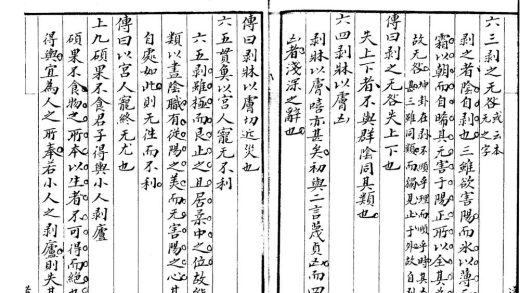 六三剥之无咎或云本无之字
剥之者陰自剥也三雖欲害陽而
霜以朝而自晴其无害于陽正所以全其
故无咎坤卦在
失上下者不與群陰同其類也
傳曰剥之无咎失上下也
六四剥牀以膚凶
剥牀以膚嘻亦甚矣初與二言蔑貞凶而四
凶者淺深之辭也
傳曰剥牀以膚切近災也
六五貫魚以宫人寵无不利
六五剥雖極而艮止之且居羣中之位故能
類以盡陰職有從陽之美而无害陽之心其
自處如此則无往而不利
傳曰以宫人寵終无尤也
上九碩果不食君子得輿小人剥廬
碩果不食物之所本以生者不可得而絶也
得輿宜為人之所奉若小人之剥廬則失其